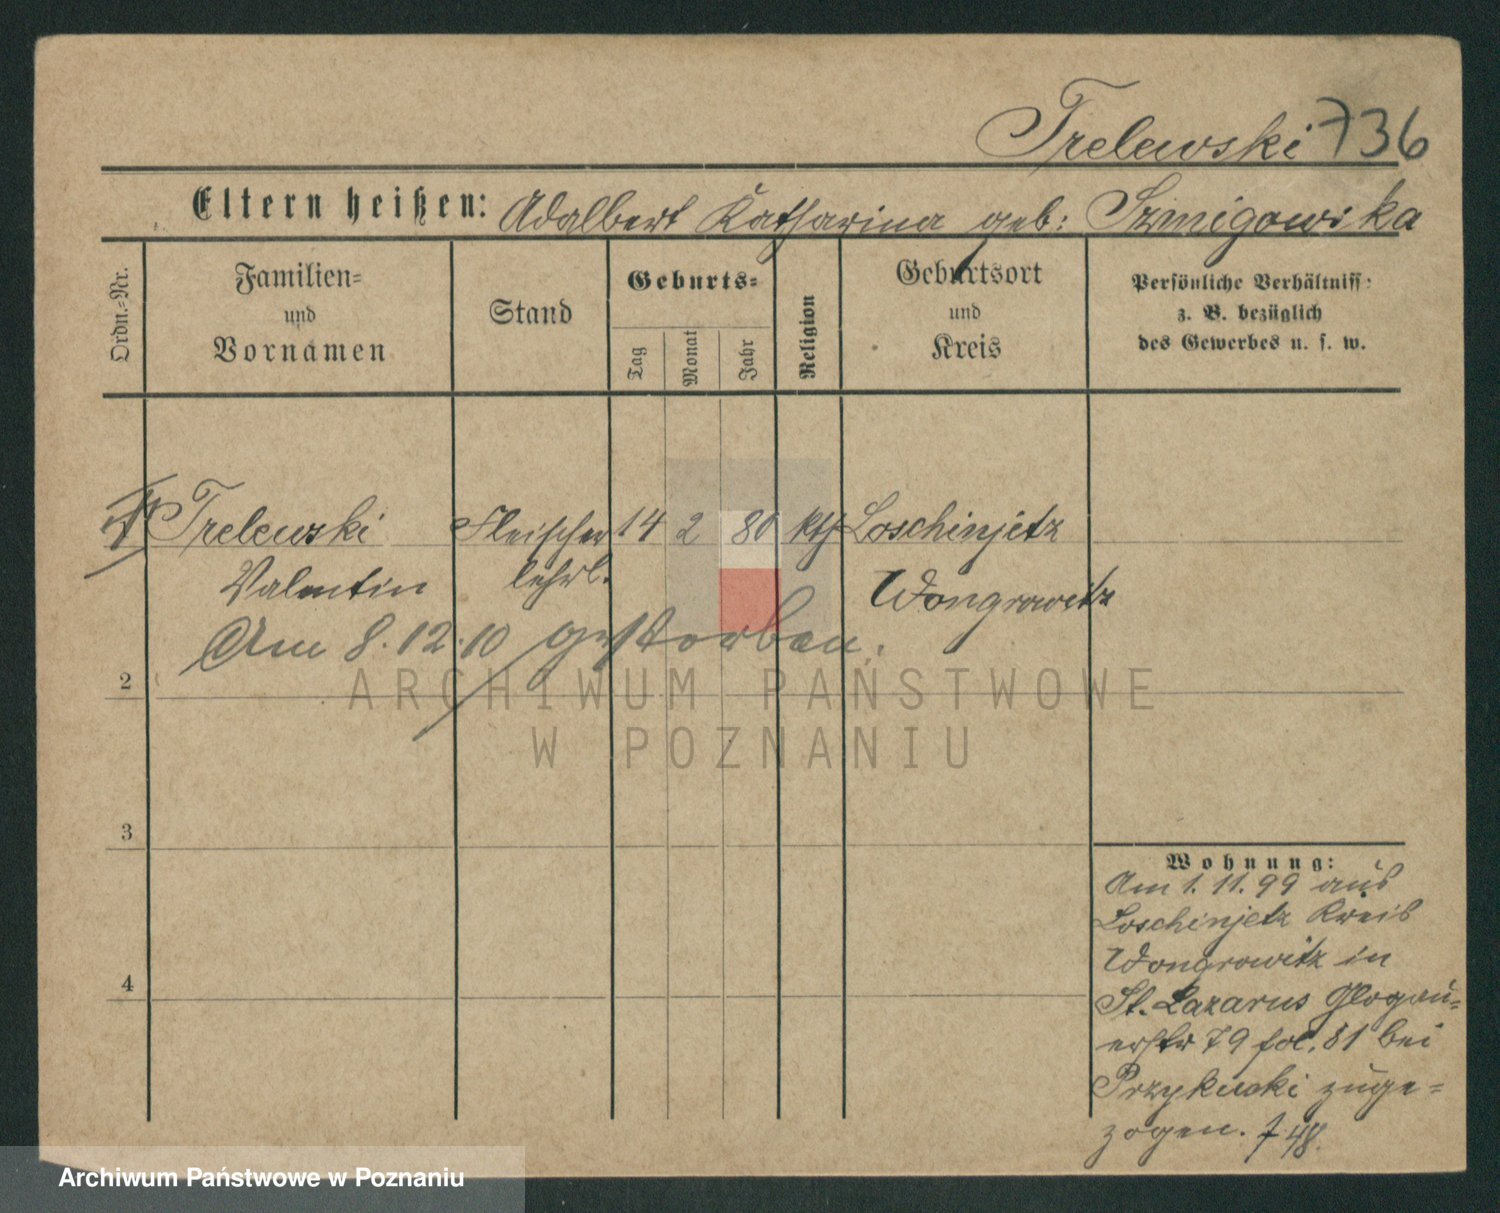 Trelewski 736
Eltern heißen: Adalbert Katharina geb: Szmigowska
Ordn.-Nr.
Familien-
und
Vornamen
Stand
Geburts-
Tag
Monat
Jahr
Religion
Geburtsort
und
Kreis
Persönliche Verhältniss:
z. B. bezüglich
des Gewerbes u. s. w.
Trelewski Fleischer 14 2 80 kth Loschinjetz
Valentin lehrl. Wongrowitz
Am 8.12.10 gestorben.
2
3
4
Wohnung:
Am 1.11.99 aus
Loschinjetz Kreis
Wongrowitz in
St. Lazarus Glogau-
erstr 79 fol. 81 bei
zuge-
zogen. 48.
ARCHIWUM PAŃSTWOWE
W POZNANIU
Archiwum Państwowe w Poznaniu